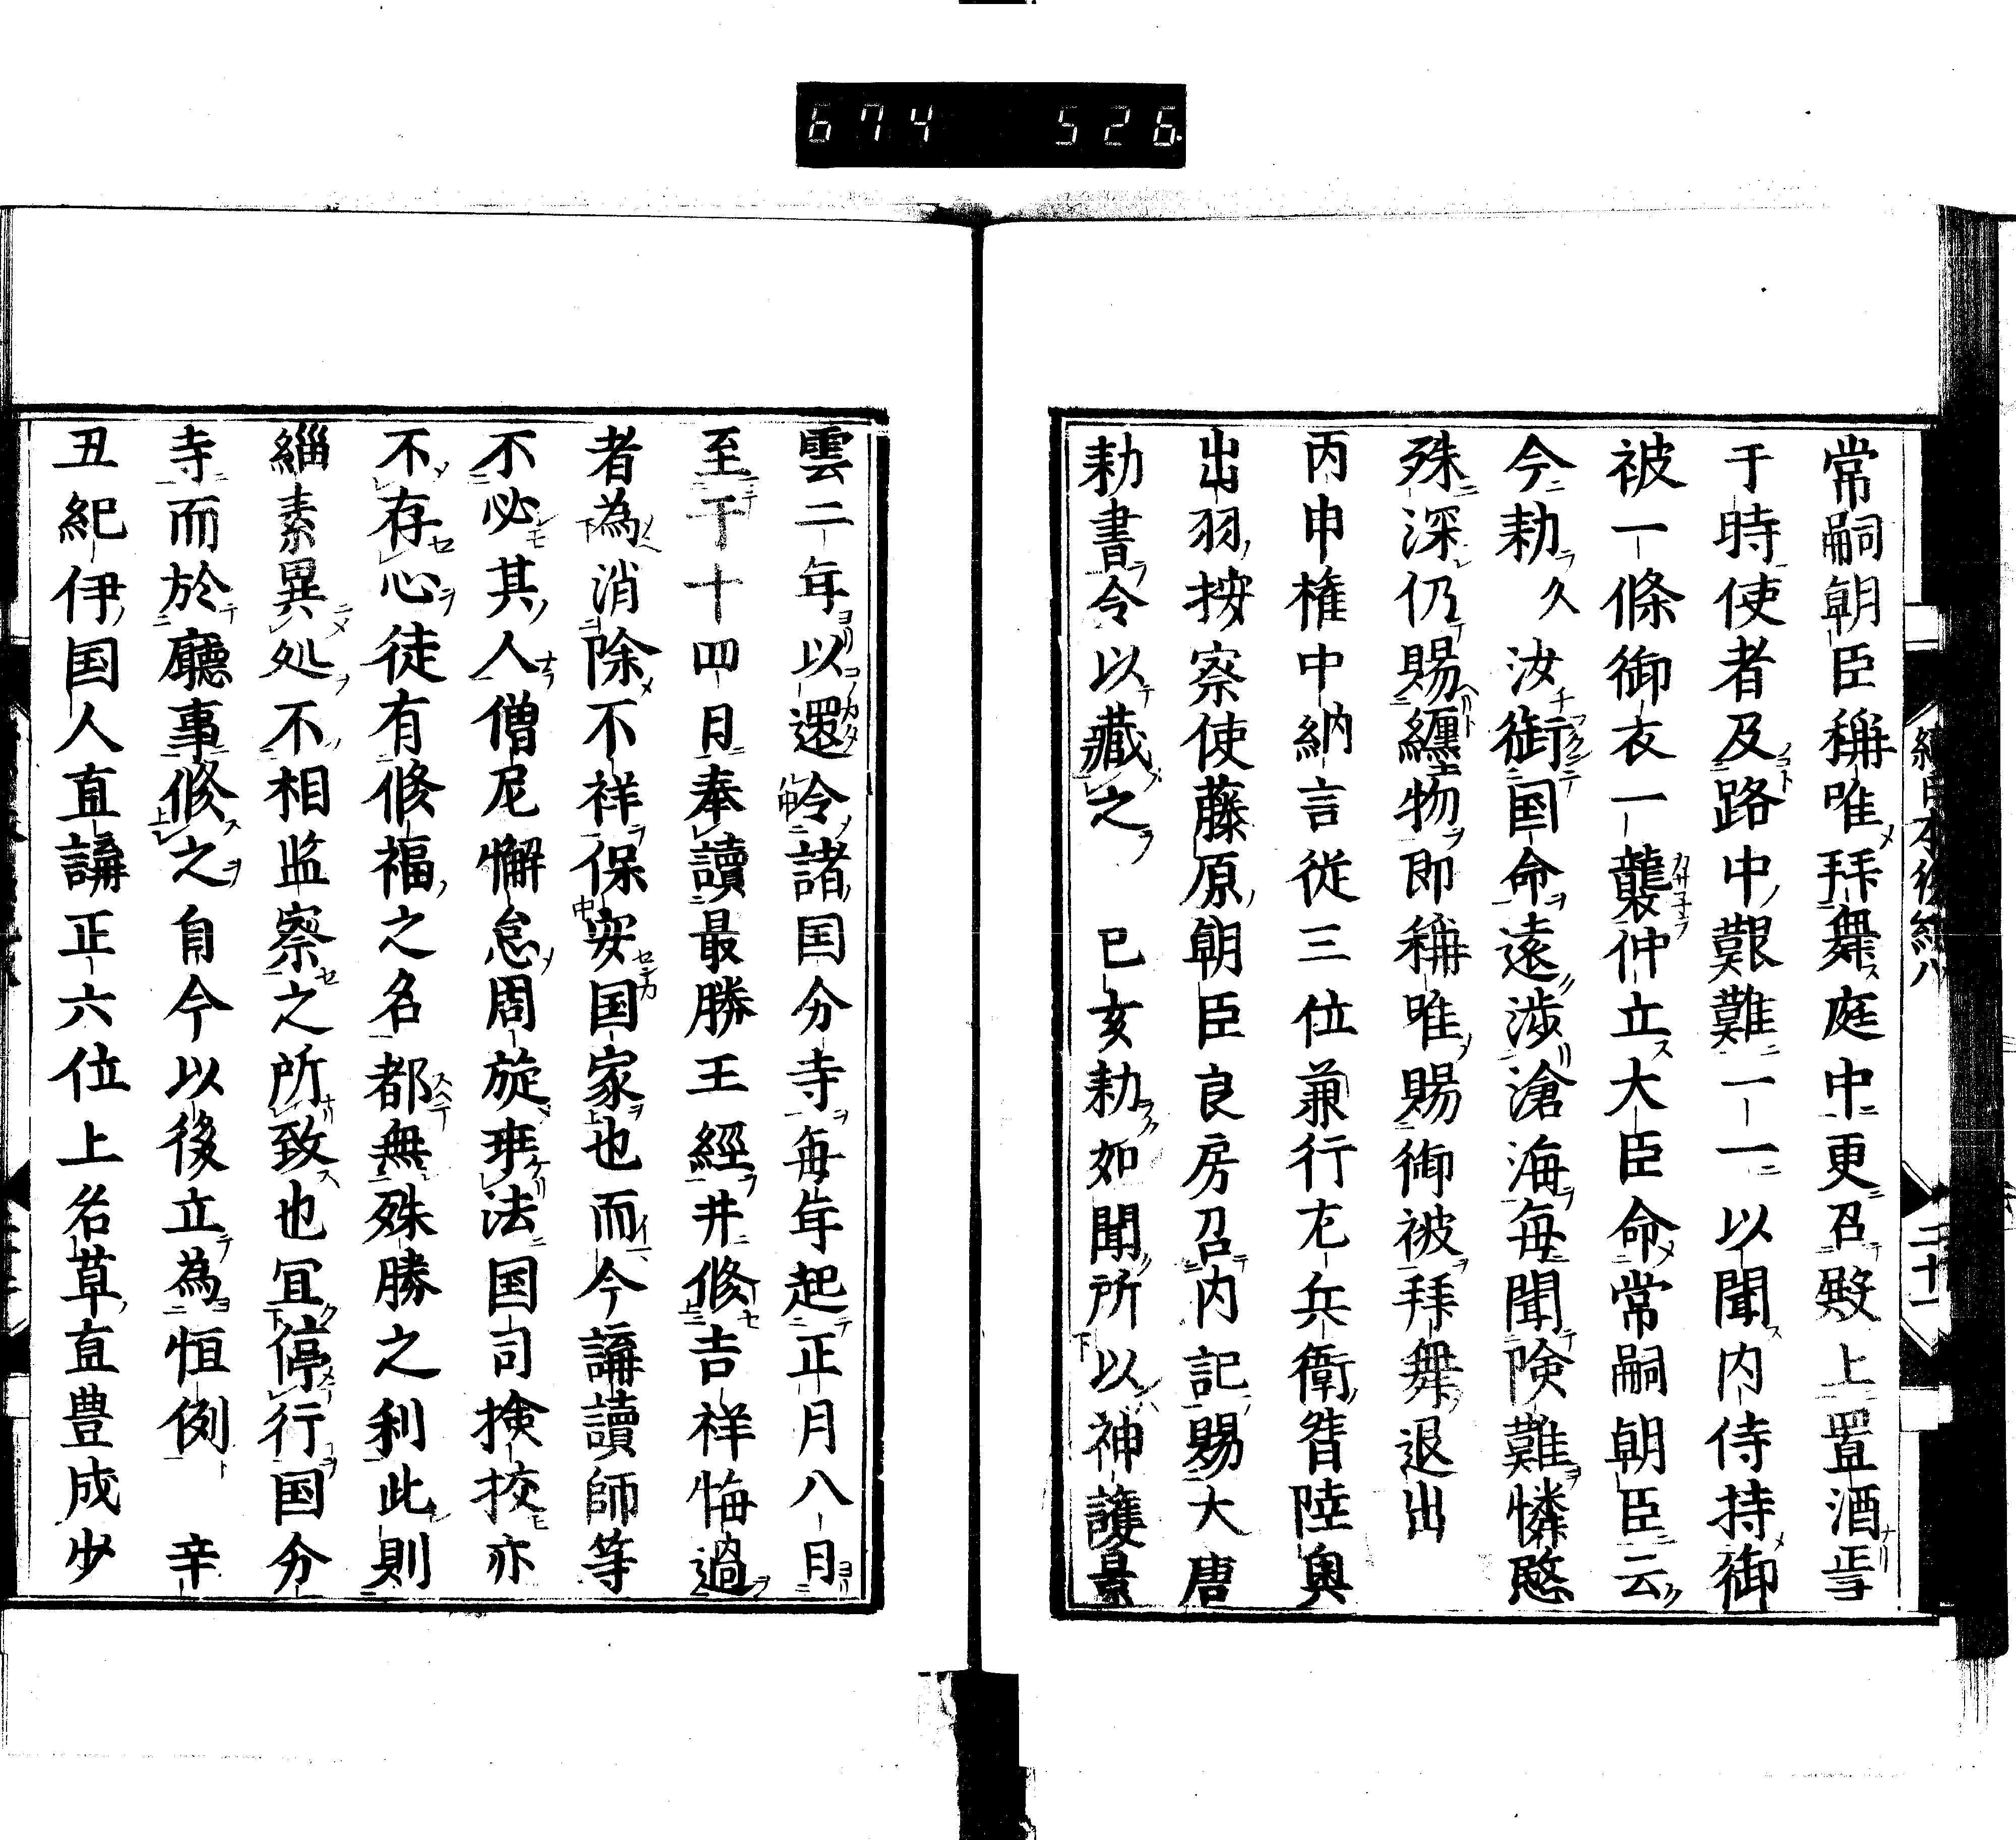 674 526
續日本後紀八
二十一
常嗣朝臣稱唯拜舞庭中更召殿上置酒焉
于時使者及路中艱難一一以聞内侍持御
被一條御衣一襲仲立大臣命常嗣朝臣云
今勅久汝銜国命遠渉滄海毎聞険難憐愍
殊深仍賜纏物即稱唯賜御被拜舞退出
丙申権中納言従三位兼行左兵衛督陸奥
出羽按察使藤原朝臣良房召内記賜大唐
勅書令以藏之　已亥勅如聞所以神護景
雲二年以還令諸国分寺毎年起正月八日
至于十四日奉讀最勝王經并修吉祥悔過
者為消除不祥保安国家也而今講讀師等
不必其人僧尼懈怠周旋乖法国司検挍亦
不存心徒有修福之名都無殊勝之利此則
緇素異処不相监察之所致也冝停行国分
寺而於廳事修之自今以後立為恒例　辛
丑紀伊国人直講正六位上名草直豊成少